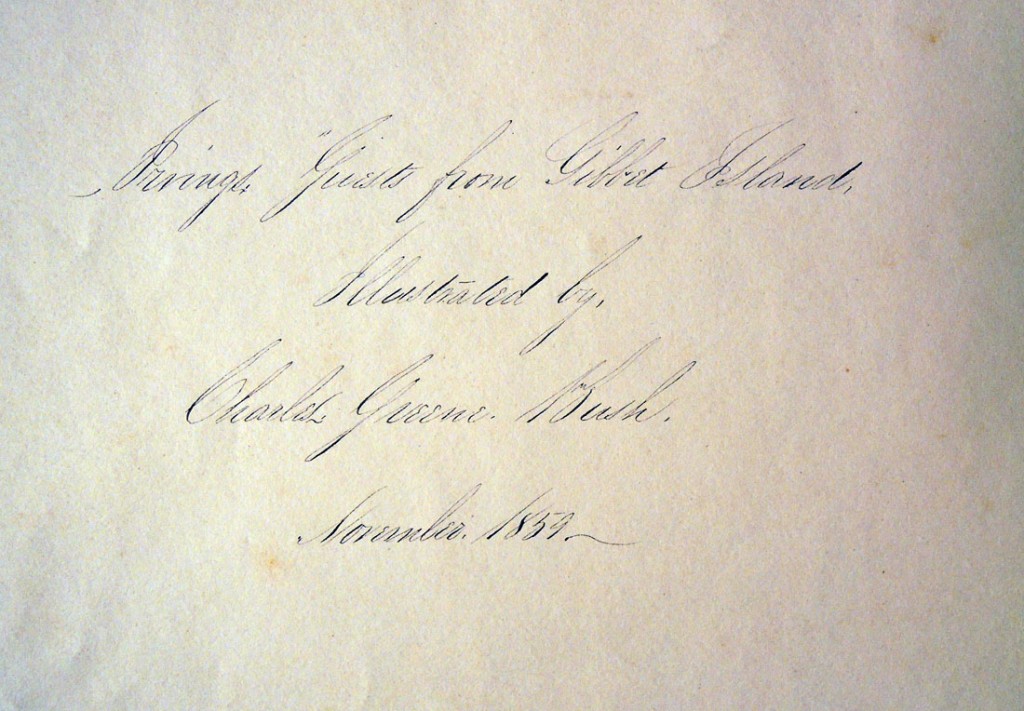 Irvings. "Guests from Gibbet Island.
Illustrated by,
Charles. Greene. Bush.
November. 1859.